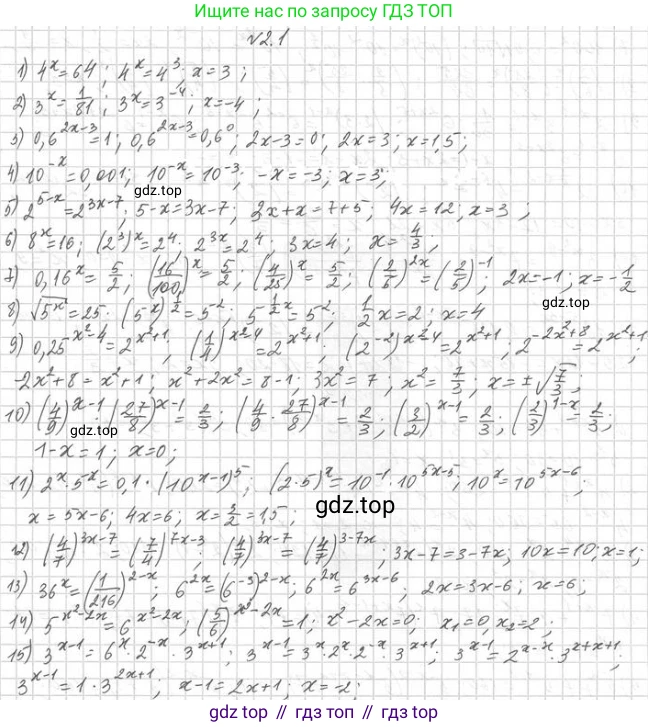 Ищите нас по запросу ГДЗ ТОП
√2.1
1) 4^x=64; 4^x=4^3; x=3;
2) 3^x=1/81; 3^x=3^-4; x=-4;
3) 0,6^(2x-3)=1; 0,6^(2x-3)=0,6^0; 2x-3=0; 2x=3; x=1,5;
4) 10^-x=0,001; 10^-x=10^-3; -x=-3; x=3;
gdz.top
5) 2^(5-x)=2^(3x-7); 5-x=3x-7; 3x+x=7+5; 4x=12; x=3;
6) 8^x=16; (2^3)^x=2^4; 2^3x=2^4; 3x=4; x=4/3;
7) 0,16^x=5/2; (16/100)^x=5/2; (4/25)^x=5/2; (2/5)^2x=(2/5)^-1; 2x=-1; x=-1/2
gdz.top
8) √5^x=25; (5^x)^1/2=5^-2; 5^(1/2 x)=5^-2; 1/2 x=2; x=4
9) 0,25^(x²-4)=2^(x²+1); (1/4)^(x²-4)=2^(x²+1); (2^-2)^(x²-4)=2^(x²+1); 2^(-2x²+8)=2^(x²+1);
-2x²+8=x²+1; x²+2x²=8-1; 3x²=7; x²=7/3; x=±√7/3;
10) (4/9)^(x-1)·(27/8)^(x-1)=2/3; (4/9·27/8)^(x-1)=2/3; (3/2)^(x-1)=2/3; (2/3)^(1-x)=2/3;
gdz.top
1-x=1; x=0;
11) 2^x·5^x=0,1·(10^(x-1))^5; (2·5)^x=10^-1·10^(5x-5); 10^x=10^(5x-6);
gdz.top
x=5x-6; 4x=6; x=3/2=1,5;
12) (4/7)^(3x-7)=(7/4)^(7x-3); (4/7)^(3x-7)=(4/7)^(3-7x); 3x-7=3-7x; 10x=10; x=1;
13) 36^x=(1/216)^(2-x); 6^2x=(6^-3)^(2-x); 6^2x=6^(3x-6); 2x=3x-6; x=6;
14) 5^(x²-2x)=6^(x²-2x); (5/6)^(x²-2x)=1; x²-2x=0; x₁=0, x₂=2;
15) 3^(x-1)=6^x·2^-x·3^(x+1); 3^(x-1)=3^x·2^x·2^-x·3^(x+1); 3^(x-1)=2^(x-x)·3^(x+x+1);
3^(x-1)=1·3^(2x+1); x-1=2x+1; x=-2;
gdz.top // gdz.top // gdz.top